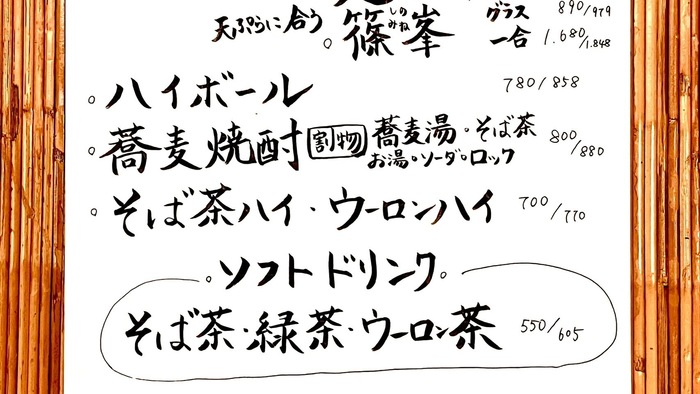 天ぷらに合う 。篠峯 しのみね グラス 890/979
一合 1.680/1.848
。ハイボール 780/858
。蕎麦焼酎 割物 蕎麦湯・そば茶 800/880
お湯・ソーダ・ロック
。そば茶ハイ・ウーロンハイ 700/770
。ソフトドリンク。
そば茶・緑茶・ウーロン茶 550/605